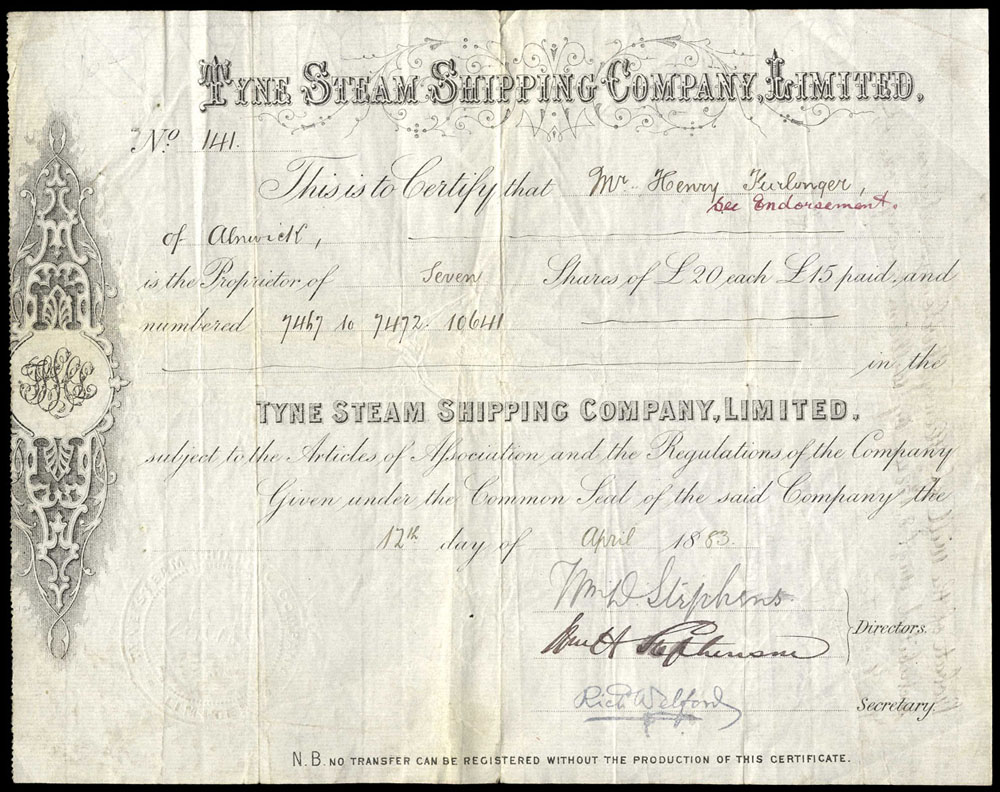 TYNE STEAM SHIPPING COMPANY, LIMITED.
No 141.
This is to Certify that Mr. Henry Furlonger,
See Endorsement.
of Alnwick,
is the Proprietor of Seven Shares of £20 each £15 paid, and
numbered 7467 to 7472. 10641
in the
TYNE STEAM SHIPPING COMPANY, LIMITED.
subject to the Articles of Association and the Regulations of the Company
Given under the Common Seal of the said Company the
12th day of April 1883.
Wm D. Stephens
Wm H Stephenson
Directors.
Richd Welford
Secretary.
N.B. NO TRANSFER CAN BE REGISTERED WITHOUT THE PRODUCTION OF THIS CERTIFICATE.